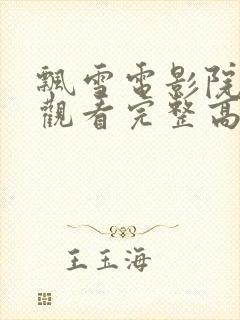 飄雪電影院
觀看完整高
王玉海